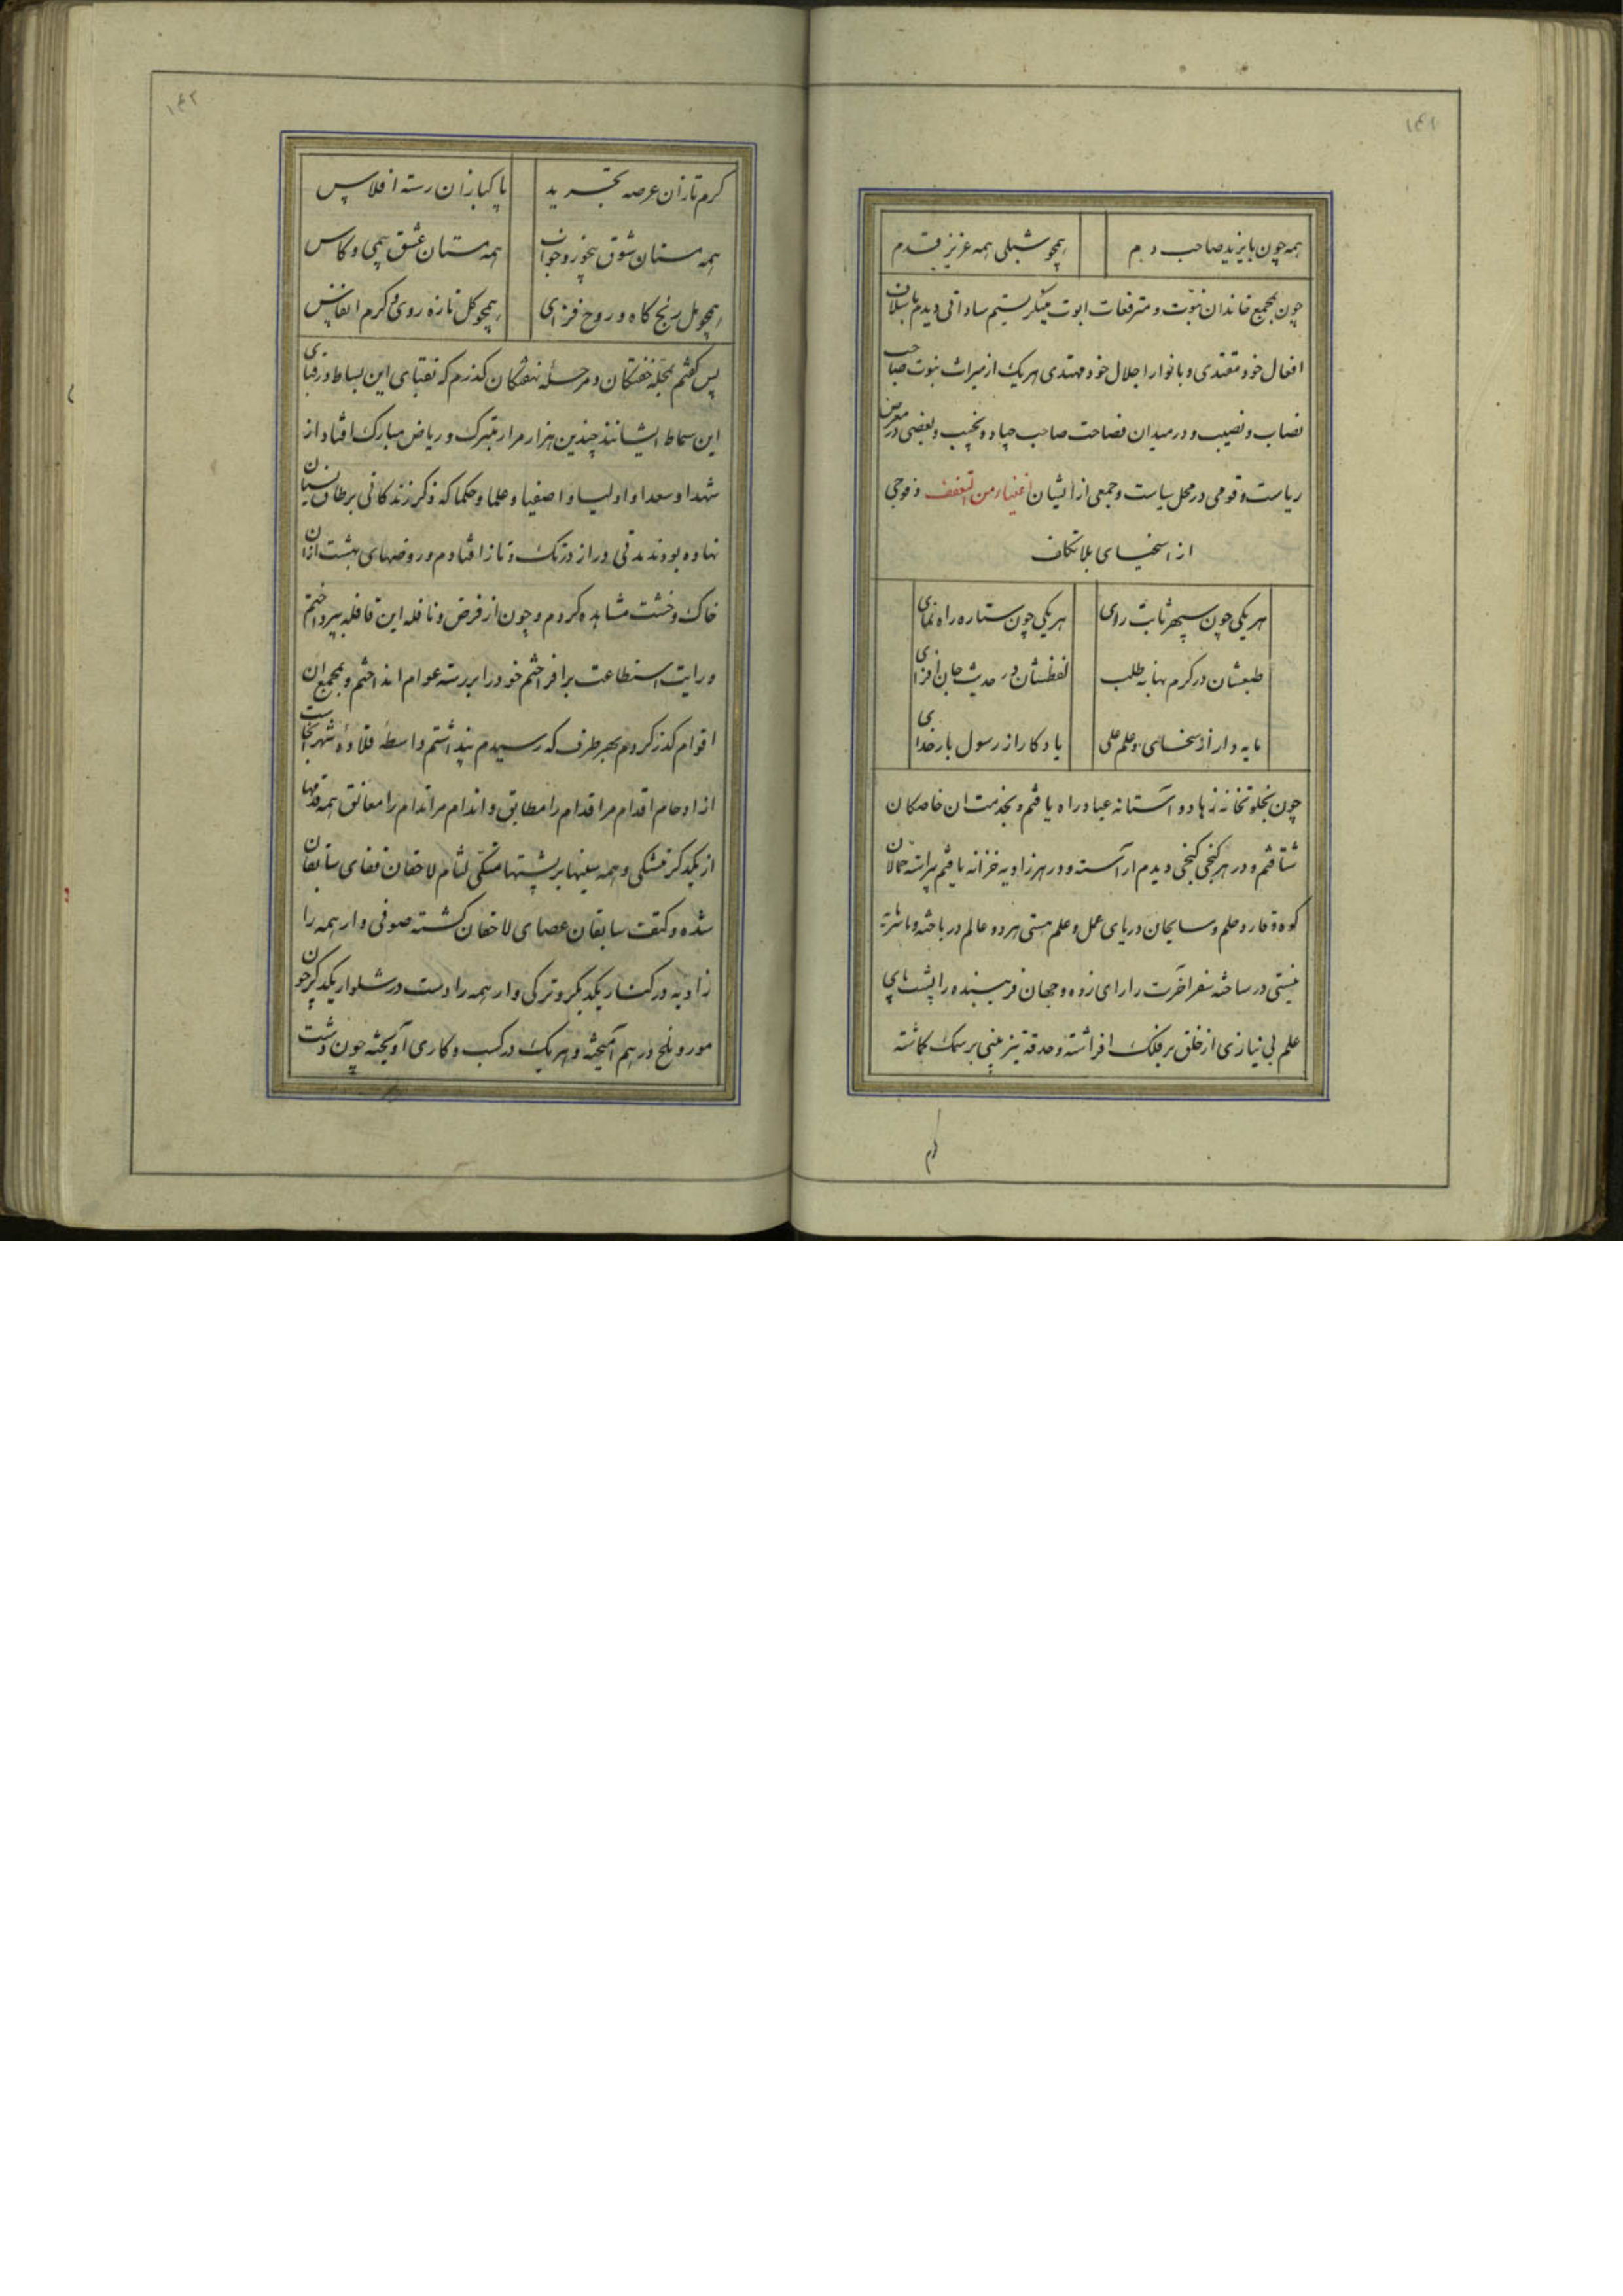 ۱۴۱
همه چون بایزید صاحب دم
همچو شبلی همه عزیز قدم
چون بمجمع خاندان نبوت و مترفعات ابوت مینکریستم ساداتی دیدم
افعال خود مقتدی و بانوار اجلال خود مهتدی هریک از میراث نبوت صاحب
نصاب و نصیب و در میدان فصاحت صاحب جیاد و نجیب و بعضی در معرض
ریاست و قومی در محل سیاست و جمعی از ایشان اغنیاء من التعفف و فوجی
از اسخیای بلا تکلف
هریکی چون سپهر ثابت رای
هریکی چون ستاره راه نمای
طبعشان در کرم بهانه طلب
لفظشان در حدیث جان افزای
مایه دار از سخای و علم علی
یادکار از رسول بار خدای
چون بخلوتخانه زهاد و آستانه عباد راه یافتم و بخدمت ان خاصکان
شتافتم و در هر کنجی کنجی دیدم اراسته و در هر زاویه خزانه یافتم پیراسته حمالان
کوه وقار و حلم و سایحان دریای عمل و علم هستی هر دو عالم در باخته و با
نیستی در ساخته سفر اخرت را رای زده و جهان فریبنده را پشت پای
علم بی نیازی از خلق بر فلک افراشته و حدقه تیز بینی بر سمک کماشته
کرم
۱۴۲
کرم تازان عرصه تجرید
پاکبازان رسته افلاس
همه مستان شوق بیخور و خواب
همه مستان عشق بی می و کاس
همچو مل رنج کاه و روح فزای
همچو کل تازه روی و کرم انفاس
پس کفتم بمحله خفتکان و مرحله نهفتکان کذرم که نقبای این بساط و رقبای
این سماط ایشانند چندین هزار مزار متبرک و ریاض مبارک افتاد از
شهدا و سعدا و اولیا و اصفیا و علما و حکما که ذکر زندکانی بر طاق نسیان
نهاده بودند مدتی دراز در تک و تاز افتادم و روضهای بهشت از ان
خاک و خشت مشاهده کردم و چون از فرض و نافله این قافله بپرداختم
و رایت استطاعت برافراختم خود را بر رسته عوام انداختم و بمجمع ان
اقوام کذر کردم بهر طرف که رسیدم پنداشتم واسطه قلاده شهر انجاست
از ازدحام اقدام مر اقدام را مطابق و اندام مر اندام را معانق همه قدمها
از یکدکر متشکی و همه سینها بر پشتها متکی لثام لاحقان قفای سابقان
شده و کتف سابقان عصای لاحقان کشته صوفی وار همه را
زاویه در کنار یکدیکر و ترکی وار همه را دست در شلوار یکدیکر چون
مور و ملخ در هم آمیخته و هر یک در کسب و کاری آویخته چون دشت